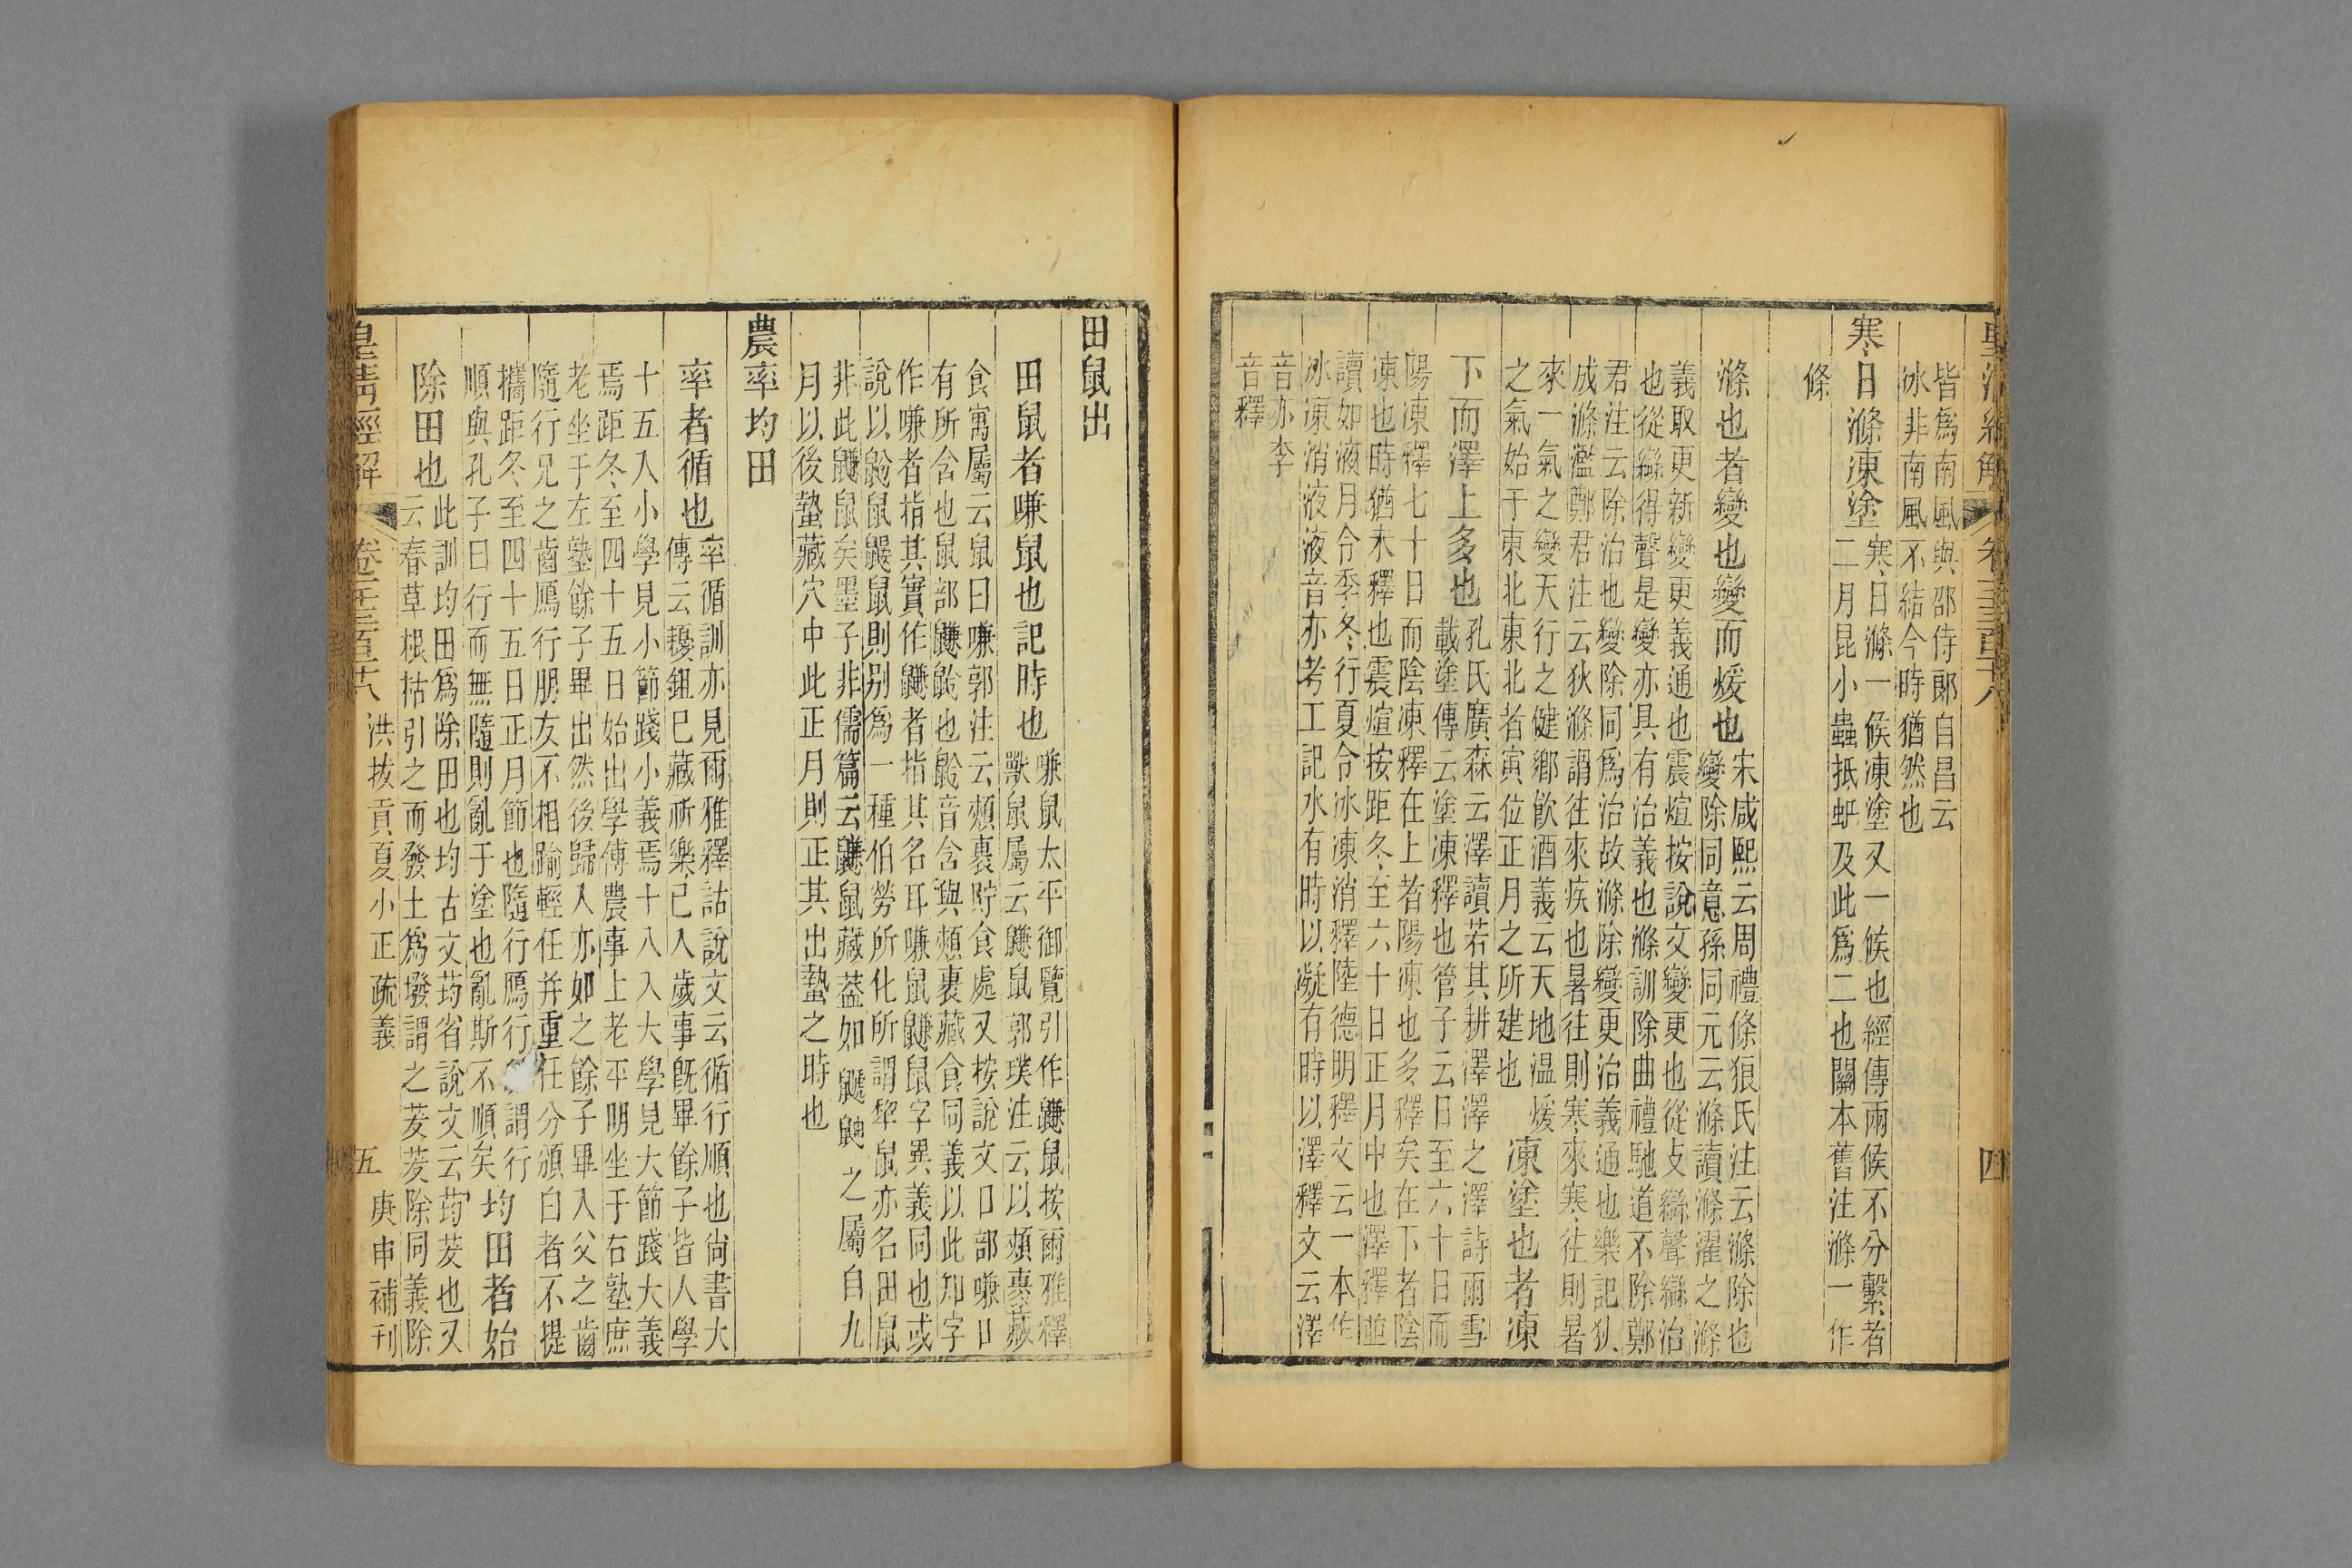 皇清經解
卷一千三百十八
四
皆爲南風與邵侍郞自昌云
冰非南風不結今時猶然也
寒日滌凍塗
寒日滌一候凍塗又一候也經傳兩候不分繫者
二月昆小蟲抵蚳及此爲二也關本舊注滌一作
條
滌也者變也變而煖也
宋咸熙云周禮條狼氏注云滌除也
變除同意孫同元云滌讀滌濯之滌
義取更新變更義通也震煊按說文變更也從攴䜌聲䜌治
也從䜌得聲是變亦具有治義也滌訓除曲禮馳道不除鄭
君注云除治也變除同爲治故滌除變更治義通也樂記狄
成滌濫鄭君注云狄滌謂往來疾也暑往則寒來寒往則暑
來一氣之變天行之健鄉飮酒義云天地温煖
之氣始于東北東北者寅位正月之所建也
凍塗也者凍
下而澤上多也
孔氏廣森云澤讀若其耕澤澤之澤詩雨雪
載塗傳云塗凍釋也管子云日至六十日而
陽凍釋七十日而陰凍釋在上者陽凍也多釋矣在下者陰
凍也時猶未釋也震煊按距冬至六十日正月中也澤釋並
讀如液月令季冬行夏令冰凍消釋陸德明釋文云一本作
冰凍消液液音亦考工記水有時以凝有時以澤釋文云澤
音亦李
音釋
田鼠出
田鼠者嗛鼠也記時也
嗛鼠太平御覽引作鼸鼠按爾雅釋
獸鼠屬云鼸鼠郭璞注云以頰裹藏
食寓屬云鼠曰嗛郭注云頰裏貯食處又按說文口部嗛口
有所含也鼠部鼸䶃也䶃音含與頰裹藏食同義以此知字
作嗛者指其實作鼸者指其名耳嗛鼠鼸鼠字異義同也或
說以䶃鼠鼴鼠則别爲一種伯勞所化所謂犂鼠亦名田鼠
非此鼸鼠矣墨子非儒篇云鼸鼠藏葢如鼷鼩之屬自九
月以後蟄藏穴中此正月則正其出蟄之時也
農率均田
率者循也
率循訓亦見爾雅釋詁說文云循行順也尙書大
傳云耰鉏已藏祈樂已入歲事旣畢餘子皆人學
十五入小學見小節踐小義焉十八入大學見大節踐大義
焉距冬至四十五日始出學傅農事上老平明坐于右塾庶
老坐于左塾餘子畢出然後歸人亦如之餘子畢入父之齒
隨行兄之齒鴈行朋友不相踰輕任并重任分頒白者不提
攜距冬至四十五日正月節也隨行鴈行謂行
順與孔子曰行而無隨則亂于塗也亂斯不順矣
均田者始
除田也
此訓均田爲除田也均古文䓑省說文云䓑茇也又
云春草根枯引之而發土爲撥謂之茇茇除同義除
皇清經解
卷一千三百十八
洪拔貢夏小正疏義
五
庚申補刊